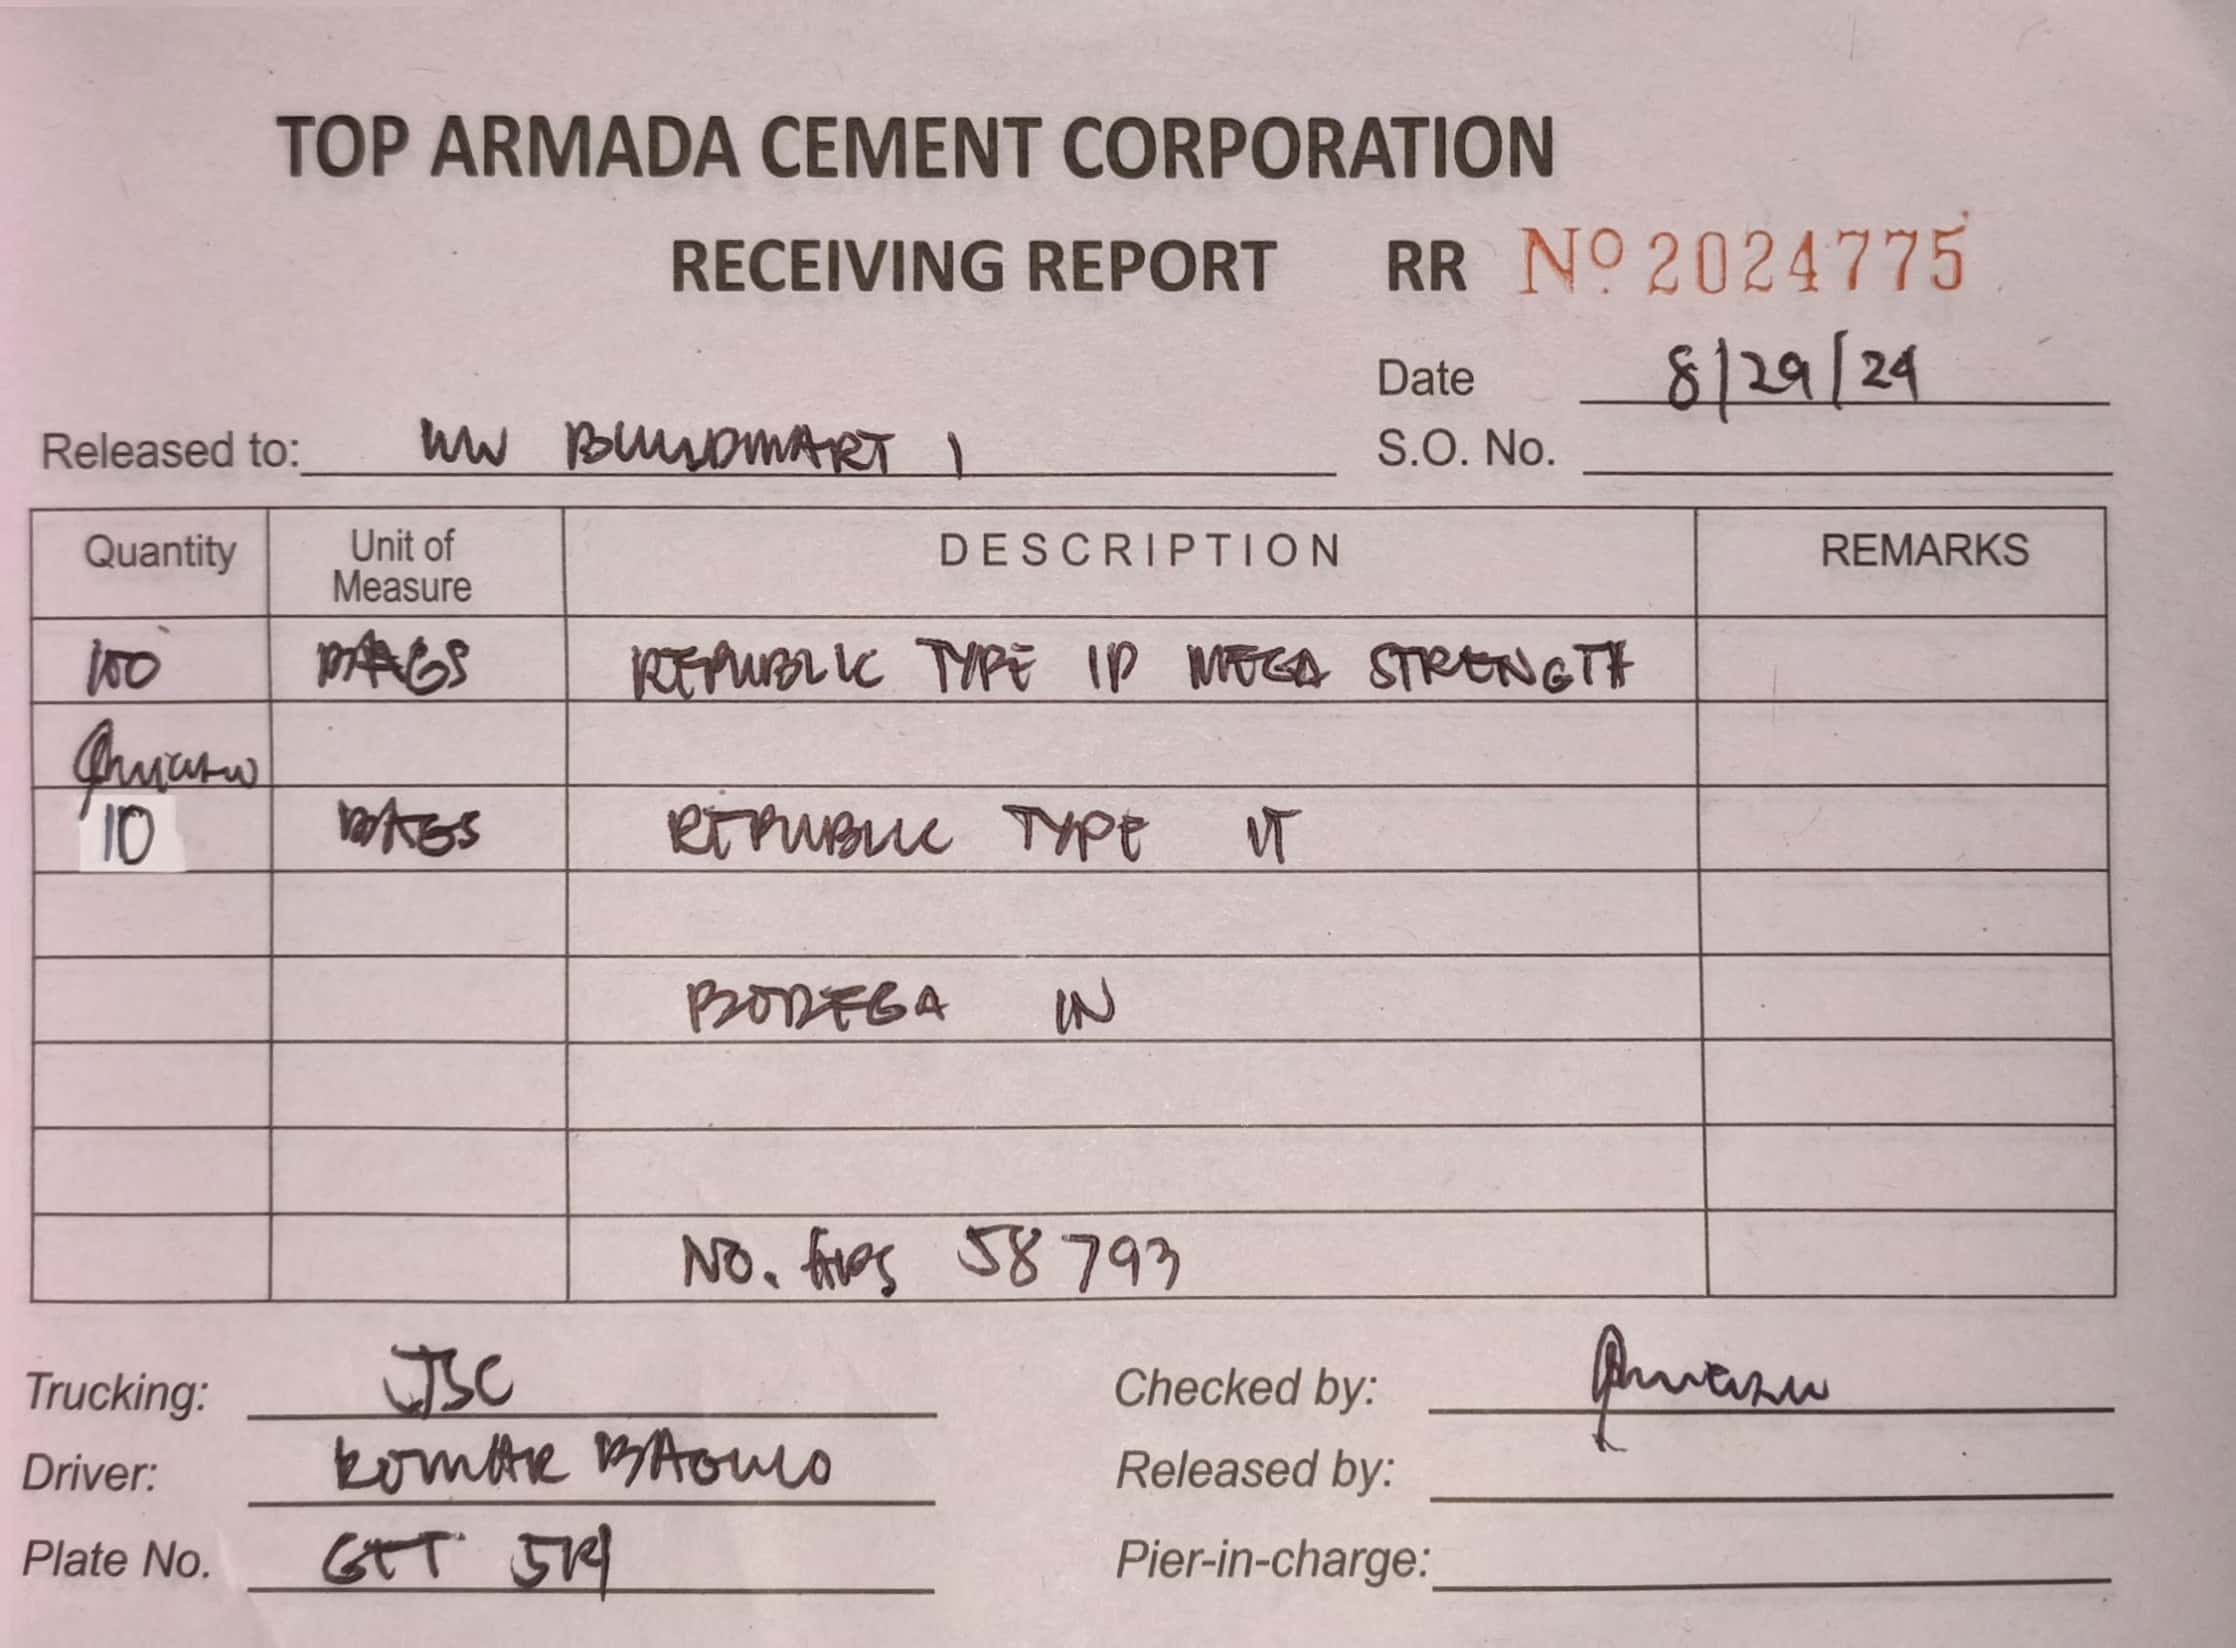 TOP ARMADA CEMENT CORPORATION
RECEIVING REPORT RR Nº 2024775
Date 8/29/24
Released to: WW BUILDMART 1 S.O. No.
Quantity Unit of Measure DESCRIPTION REMARKS
100 BAGS REPUBLIC TYPE 1P MEGA STRENGTH
10 BAGS REPUBLIC TYPE 1T
BODEGA IN
NO. 58793
Trucking: JSC Checked by:
Driver: ROMAR Released by:
Plate No. Pier-in-charge: